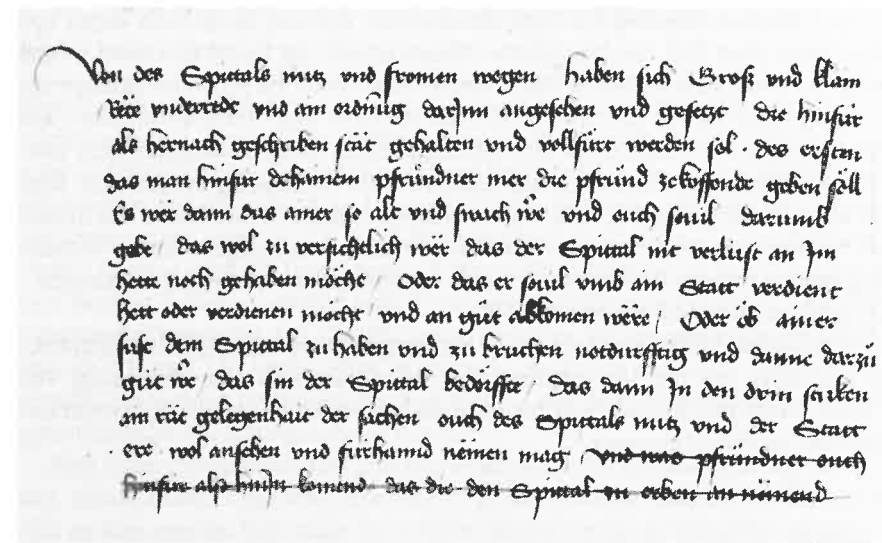 Von des Spittals nutz vnd fromen wegen haben sich Groß vnd klain
Räte vnderrede vnd ain ordnung darJnn angesehen vnd gesetzt die hinfür
als hernach geschriben stät gehalten vnd vollfürt werden sol · des ersten
das man hinfür dehainem pfründner mer die pfründ zekoffende geben söll
Es wer dann das ainer so alt vnd swach wer vnd ouch souil darumb
gebe das wol zu versichtlich wer das der Spittal nit verlust an Jm
hette noch gehaben möcht Oder das er souil vmb ain Statt verdient
hett oder verdienen möcht vnd an güt abkomen were / Oder ob ainer
sust dem Spittal zu haben vnd zu bruchen notdurfftig vnd danne darzů
güt wer das sin der Spittal bedörffte das dann Jn den drin stuken
ain rät gelegenhait der sachen ouch des Spittals nutz vnd der Statt
ere wol ansehen vnd fürhannd nemen mag / vnd was pfründner ouch
hinfür also hinJn komend das die den Spittal zu erben an nämend